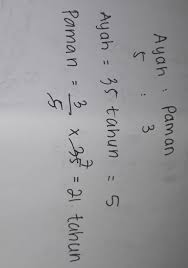 Ayah : Paman
5 : 3
Ayah = 35 tahun = 5
Paman = 3/5 x 35 7 = 21 tahun